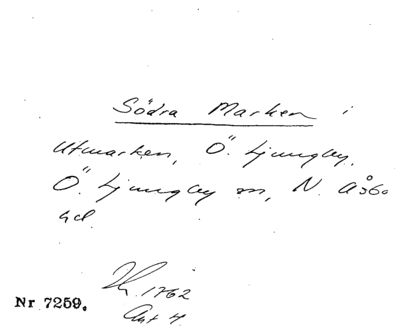 Södra Marken i
Utmarken, Ö. Ljungby,
Ö. Ljungby sn, N. Åsbo
hd.
1762
Akt 4.
Nr 7259.